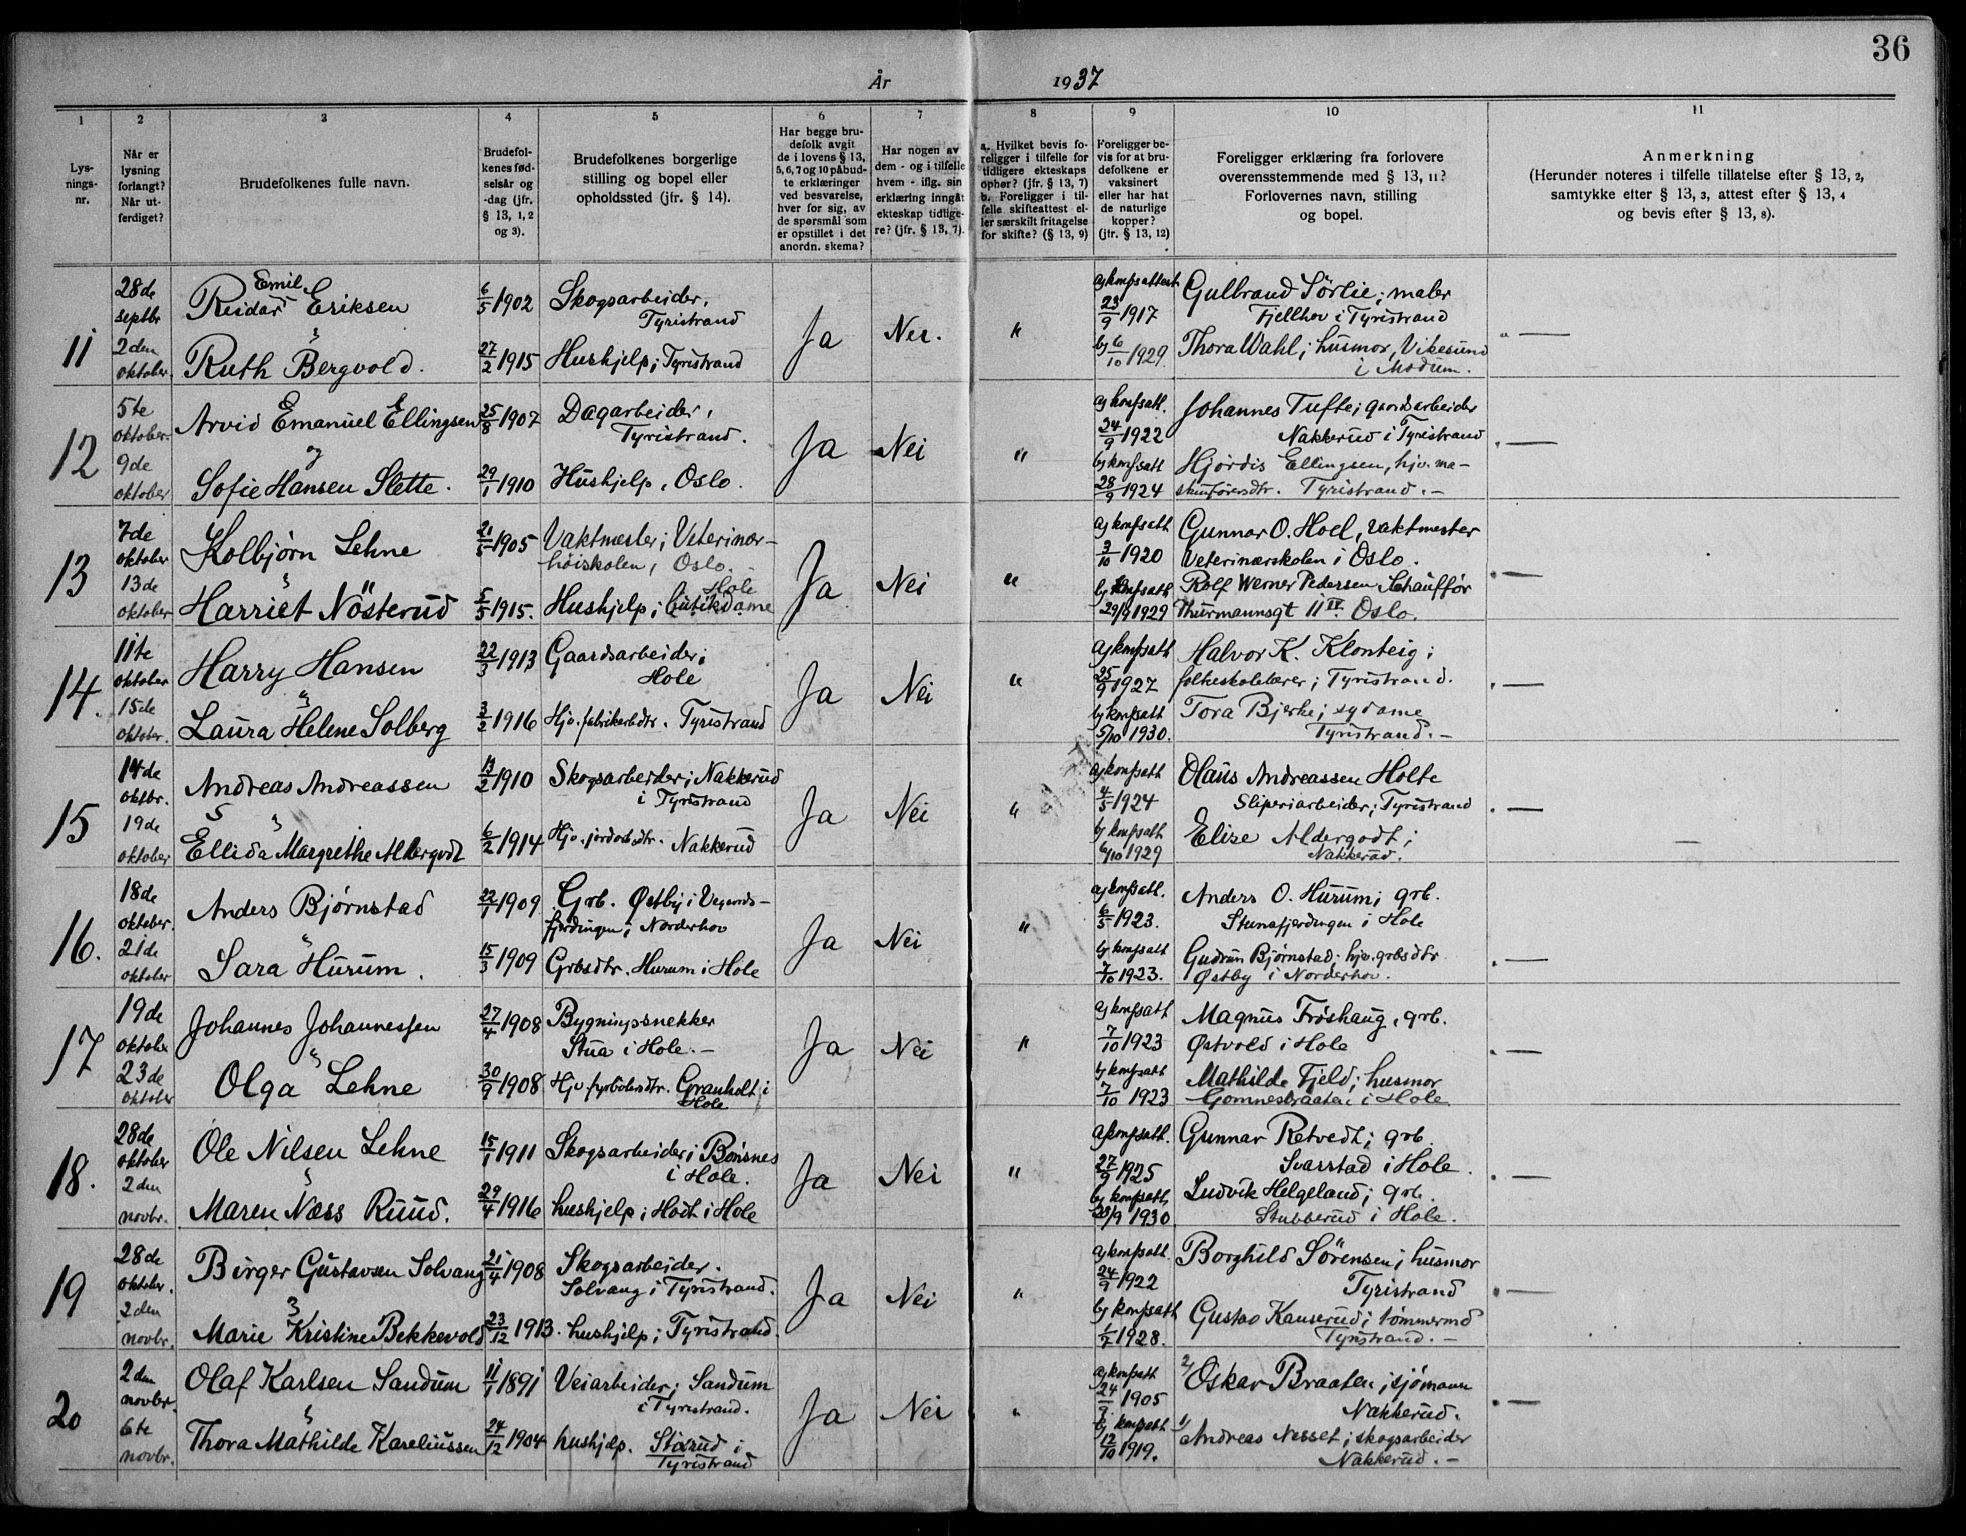 36
År 1937
1 2 3 4 5 6 7 8 9 10 11
Lysnings-nr.
Når er lysning forlangt? Når utferdiget?
Brudefolkenes fulle navn.
Brudefolkenes fødselsår og -dag (jfr. § 13, 1, 2 og 3).
Brudefolkenes borgerlige stilling og bopel eller opholdssted (jfr. § 14).
Har begge brudefolk avgit de i lovens § 13, 5, 6, 7 og 10 påbudte erklæringer ved besvarelse, hver for sig, av de spørsmål som er opstillet i det anordn. skema?
Har nogen av dem - og i tilfelle hvem - iflg. sin erklæring inngåt ekteskap tidligere? (jfr. § 13, 7).
a. Hvilket bevis foreligger i tilfelle for tidligere ekteskaps ophør? (jfr. § 13, 7) b. Foreligger i tilfelle skifteattest eller særskilt fritagelse for skifte? (§ 13, 9)
Foreligger bevis for at brudefolkene er vaksinert eller har hat de naturlige kopper? (jfr. § 13, 12)
Foreligger erklæring fra forlovere overensstemmende med § 13, 11? Forlovernes navn, stilling og bopel.
Anmerkning (Herunder noteres i tilfelle tillatelse efter § 13, 2, samtykke efter § 13, 3, attest efter § 13, 4 og bevis efter § 13, 8).
11
28de septbr 2den oktober.
Reidar Emil Eriksen 6/5 1902 Skogsarbeider, Tyristrand
Ruth Bergvold. 27/2 1915 Hushjelp; Tyristrand
Ja Nei. "
a) konfsattest 23/9 1917 Gulbrand Sörlie; maler Fjellhov i Tyristrand
b) 6/10 1929 Thora Wahl; husmor, Vikesund i Modum.
12
5te oktober. 9de oktober
Arvid Emanuel Ellingsen 25/8 1907 Dagarbeider, Tyristrand.
og
Sofie Hansen Slette. 29/1 1910 Hushjelp, Oslo.
Ja Nei "
a) konfsatt. 24/9 1922 Johannes Tufte; gaardsarbeider Nakkerud i Tyristrand
b) konfsatt 28/9 1924 Hjördis Ellingsen, hjv. maskinförersdtr. Tyristrand. -
13
7de oktober 13de oktober
Kolbjørn Lehne 21/5 1905 Vaktmester; Veterinærhöiskolen, Oslo.
Harriet Nösterud 5/5 1915. Hushjelp; butikdame Hole
Ja Nei "
a) konfsatt 3/10 1920 Gunnar O. Hoel, vaktmester Veterinærskolen i Oslo.
b) konfsatt 29/9 1929 Rolf Werner Pedersen Schaufför Thurmannsgt 11 IV. Oslo.
14.
11te oktober 15de oktober.
Harry Hansen 22/3 1913 Gaardsarbeider; Hole
Laura Helene Solberg 3/2 1916 Hjv. fabrikarbdtr. Tyristrand
Ja Nei "
a) konfsatt 25/9 1927 Halvor K. Klonteig; folkeskolelærer; Tyristrand.
b) konfsatt 5/10 1930. Tora Bjerke; sydame Tyristrand. -
15
14de oktbr. 19de oktober
Andreas Andreassen 13/2 1910 Skogsarbeider; Nakkerud i Tyristrand
Ellida Margrethe Aldergodt 6/2 1914 Hjv. jordarbdtr. Nakkerud
Ja Nei "
a) konfsatt 4/5 1924 Olaus Andreassen Holte Sliperiarbeider; Tyristrand
b) konfsatt 6/10 1929 Elise Aldergodt; Nakkerud.
16.
18de oktober. 21de oktober
Anders Bjørnstad 22/1 1909 Grb. Østby i Vegardsfjerdingen; Norderhov
Sara Hurum. 15/3 1909 Grbsdtr. Hurum i Hole
Ja Nei "
a) konfsatt. 6/5 1923. Anders O. Hurum; grb. Steinsfjerdingen i Hole
b) konfsatt 7/10 1923. Gudrun Bjørnstad; hjv. grbsdtr Østby i Norderhov.
17
19de oktober 23de oktober
Johannes Johannessen 27/4 1908 Bygningssnekker Stua i Hole. -
Olga Lehne 30/9 1908 Hjv. fyrböterdtr. Granholt i Hole
Ja Nei "
a) konfsatt 7/10 1923 Magnus Fröshaug, grb. Østvold i Hole
b) konfsatt 7/10 1923 Mathilde Fjeld; husmor Gomnesbraaten i Hole
18.
28de oktober 2den novbr.
Ole Nilsen Lehne 15/1 1911 Skogsarbeider; Bönsnes i Hole.
Maren Næss Ruud. 29/4 1916 hushjelp; i Hole
Ja Nei "
a) konfsatt. 27/9 1925 Gunnar Retvedt; grb. Svarstad i Hole.
b) konfsatt 28/9 1930 Ludvik Helgeland; grb. Stubberud i Hole.
19
28de oktober. 2den novbr.
Birger Gustavsen Solvang 21/4 1908 Skogsarbeider. Solvang i Tyristrand.
Marie Kristine Bekkevold 23/12 1913. hushjelp; Tyristrand.
Ja Nei "
a) konfsatt. 24/9 1922 Borghild Sörensen; husmor Tyristrand
b) konfsatt 1/7 1928. Gustav Kauserud; tömmermd Tyristrand. -
20
2den novbr. 6te novbr.
Olaf Karlsen Sandum 11/1 1891 Veiarbeider; Sandum i Tyristrand.
Thora Mathilde Kareliussen 24/12 1904 hushjelp. Stixrud i Tyristrand
Ja Nei "
a) konfsatt 24/9 1905 2/ Oskar Braaten; sjömann Nakkerud.
b) konfsatt 12/10 1919. 1/ Andreas Nesset; skogsarbeider Nakkerud. -